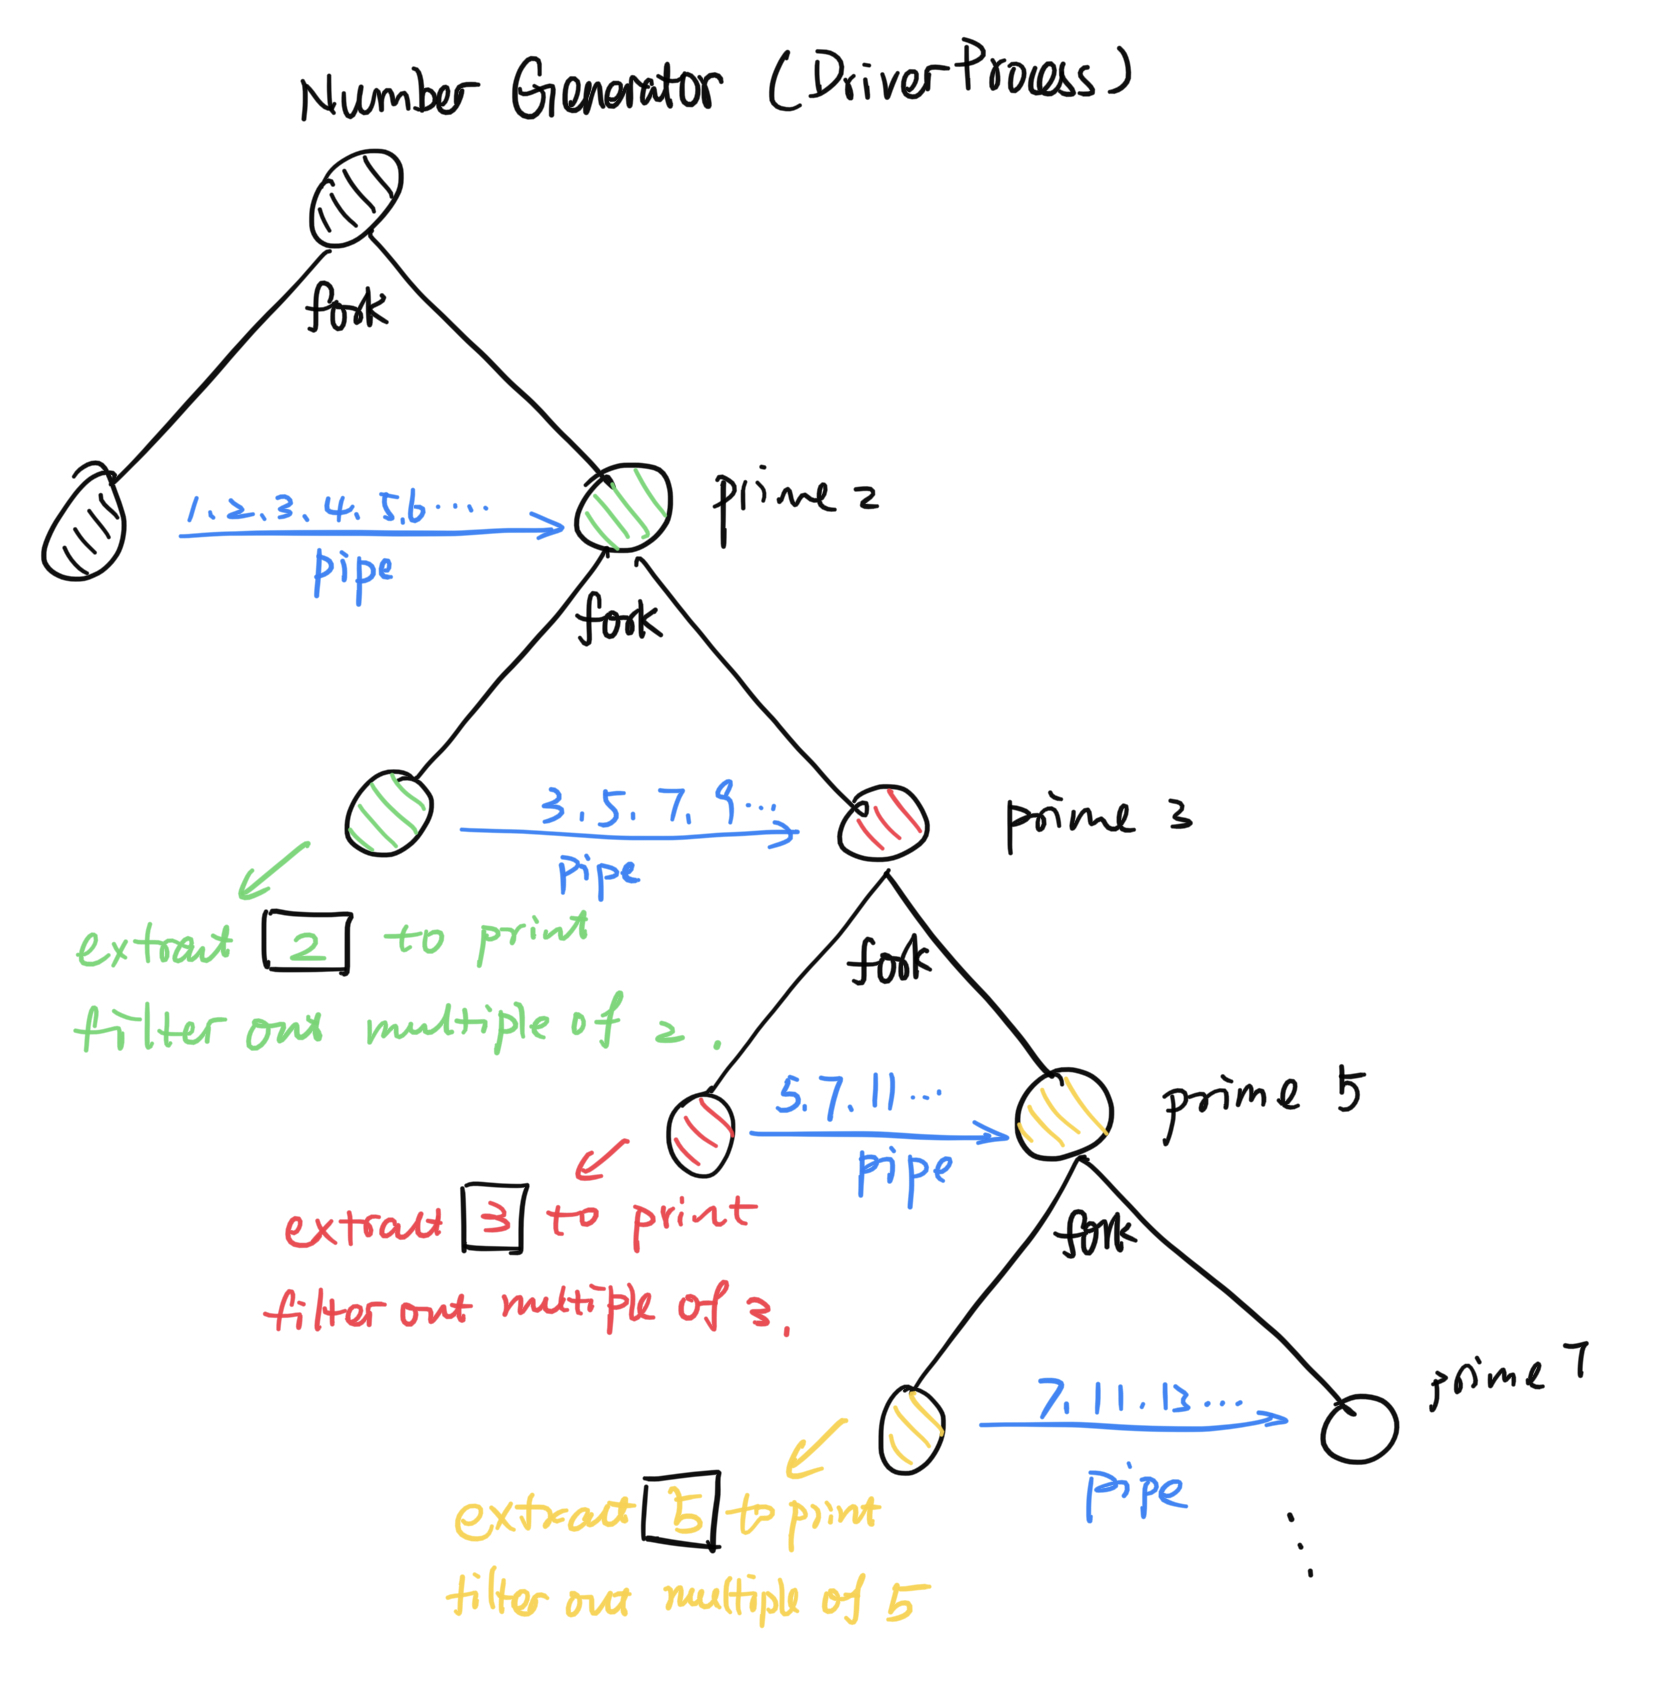 Number Generator (Driver Process)
fork
1.2.3.4.5.6....
pipe
prime 2
fork
3.5.7.9...
pipe
prime 3
extract 2 to print
filter out multiple of 2.
fork
5.7.11...
pipe
prime 5
extract 3 to print
filter out multiple of 3.
fork
7.11.13...
pipe
prime 7
extract 5 to print
filter out multiple of 5